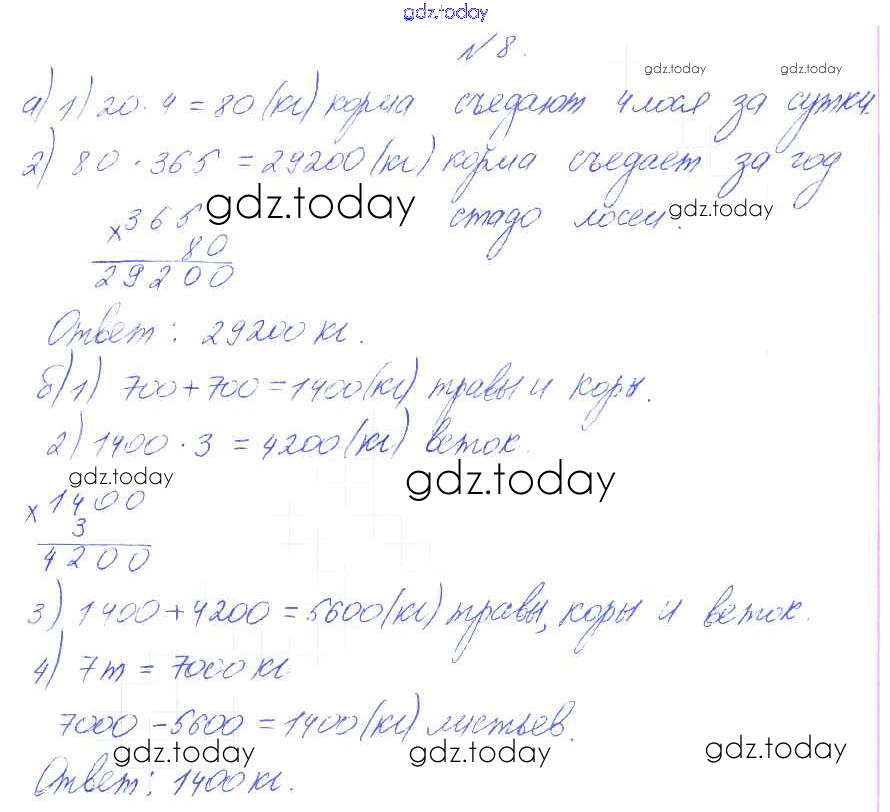 gdz.today
№ 8.
gdz.today gdz.today
а) 1) 20 · 4 = 80 (кг) корма съедают 4 лося за сутки.
2) 80 · 365 = 29200 (кг) корма съедает за год
стадо лосей. gdz.today
× 365 gdz.today
80
29200
Ответ: 29200 кг.
б) 1) 700 + 700 = 1400 (кг) травы и коры.
2) 1400 · 3 = 4200 (кг) веток.
gdz.today gdz.today
× 1400
3
4200
3) 1400 + 4200 = 5600 (кг) травы, коры и веток.
4) 7 т = 7000 кг
7000 – 5600 = 1400 (кг) листьев.
gdz.today gdz.today gdz.today
Ответ: 1400 кг.